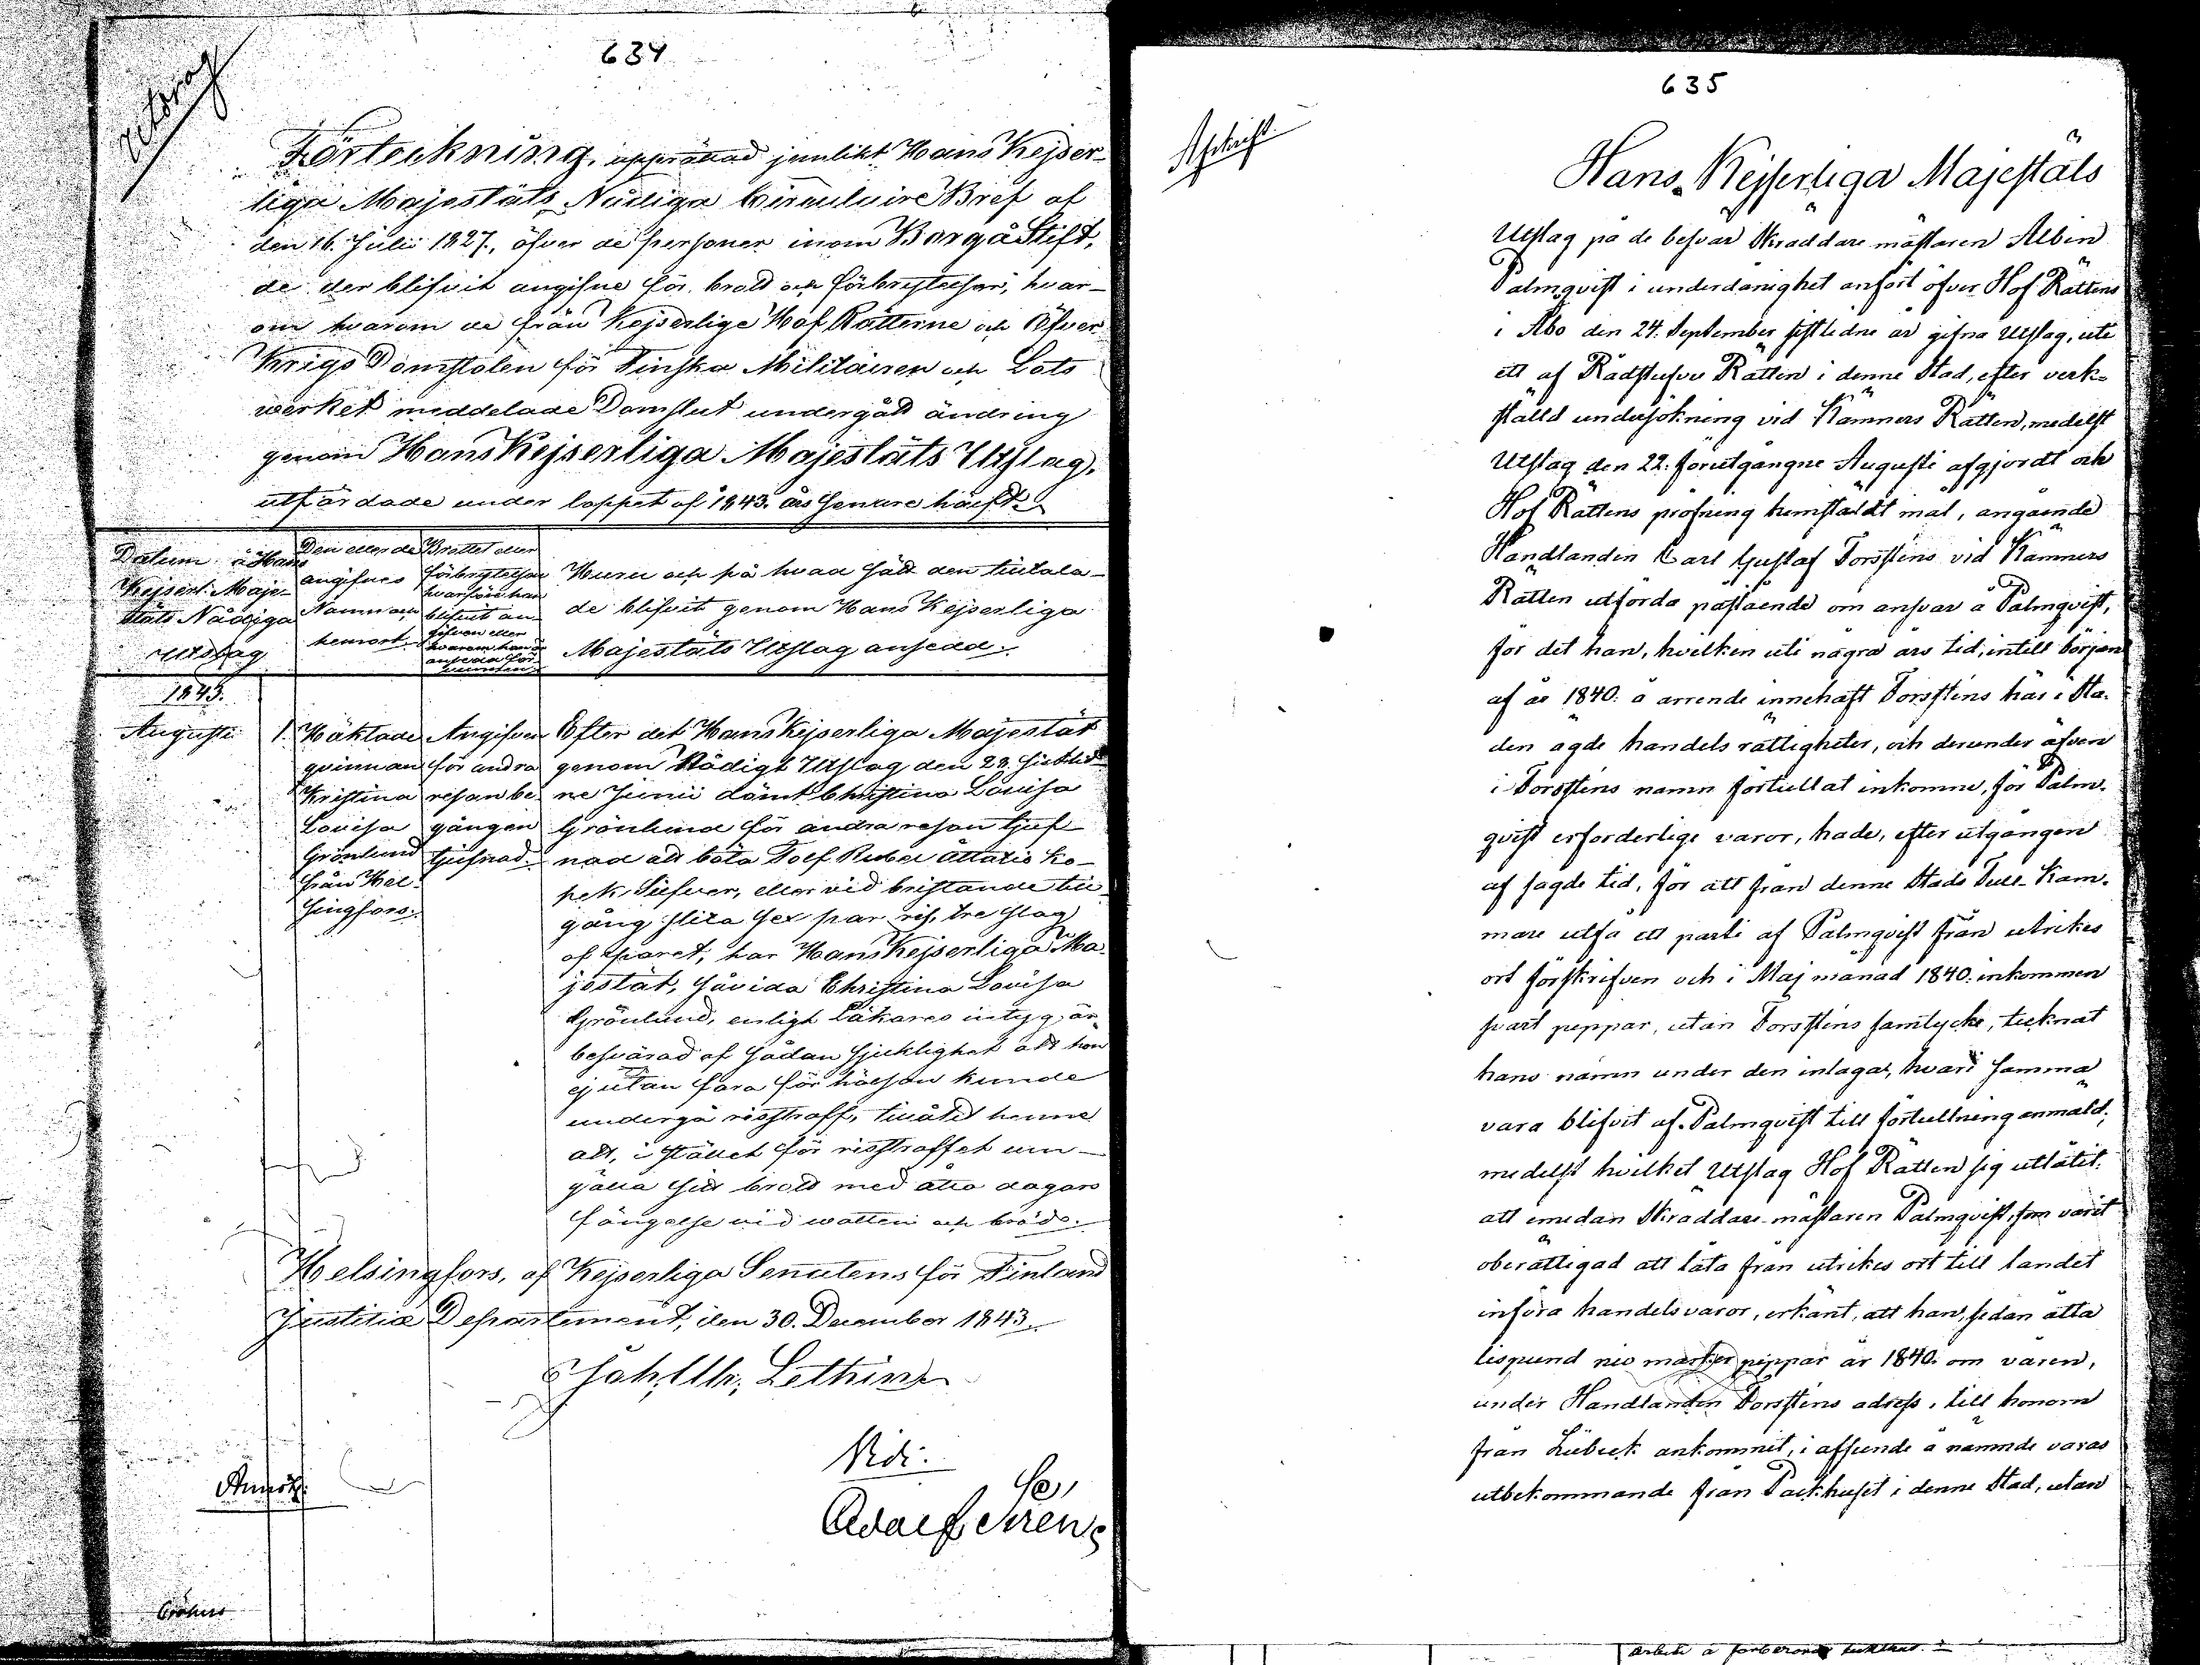 634
Utdrag
Förteckning, upprättad jemlikt Hans Kejser-
liga Majestäts Nådiga Circulaire Bref af
den 16. Julii 1827, öfver de personer inom Borgå Stift,
de der blifvit angifne för brott och förbrytelser, hvar-
om hvarom de från Kejserlige Hof Rätterne och Öfver
Krigs Domstolen för Finska Militairen och Lots
werket meddelade Domslut undergått ändring
genom Hans Kejserliga Majestäts Utslag,
utfärdade under loppet af 1843. års senare hälft.
Datum å Hans
Kejserl. Maje-
stäts Nådiga
utslag
Den eller de
angifnes
Namn och
hemort.
Brottet eller
förbrytelsen
hvarföre han
blifvit an-
gifven eller
hvarom han är
ansedd för-
vunnen.
Huru och på hvad sätt den tilltala-
de blifvit genom Hans Kejserliga
Majestäts Utslag ansedd.
1843.
Augusti 1.
Häktade
qvinnan
Kristina
Lovisa
Grönlund
från Hel-
singfors.
Angifven
för andra
resan be-
gången
tjufnad.
Efter det Hans Kejserliga Majestät
genom Nådigt Utslag den 28. sistlid-
ne Junii dömt Christina Lovisa
Grönlund för andra resan tjuf-
nad att böta Tolf Rubel åttatio ko-
pek Silfver, eller vid bristande till-
gång slita sex par ris, tre slag
af paret, har Hans Kejserliga Ma-
jestät, såvida Christina Lovisa
Grönlund, enligt Läkares intyg, är
besvärad af sådan sjuklighet att hon
ej utan fara för hälsan kunde
undergå risstraff, tillåtit henne
att, i stället för risstraffet um-
gälla sitt brott med åtta dagars
fängelse vid watten och bröd.
Helsingfors, af Kejserliga Senatens för Finland
Justitiæ Departement, den 30. December 1843.
Joh. Ulr. Lethin
Vidi:
Adolf
635
Afskrift
Hans Kejserliga Majestäts
Utslag på de besvär Skräddare mästaren Albin
Palmqvist i underdånighet anfört öfver Hof Rättens
i Åbo den 24. September sistledne år gifna Utslag, uti
ett af Rådstufvu Rätten i denne Stad, efter verk-
ställd undersökning vid Kämners Rätten, medelst
Utslag den 22. förutgångne Augusti afgjordt och
Hof Rättens pröfning hemstäldt mål, angående
Handlanden Carl Gustaf Forssténs vid Kämners
Rätten utförda påstående om ansvar å Palmqvist,
för det han, hvilken uti några års tid, intill början
af år 1840. å arrende innehaft Forssténs här i Sta-
den ägde handels rättigheter, och derunder äfven
i Forssténs namn förtullat inkomne, för Palm-
qvist erforderlige varor, hade, efter utgången
af sagde tid, för att från denne Stads Tull-Kam-
mare utfå ett parti af Palmqvist från utrikes
ort förskrifven och i Maj månad 1840. inkommen
svart peppar, utan Forssténs samtycke, tecknat
hans namn under den inlaga, hvari samma
vara blifvit af Palmqvist till förtullning anmäld,
medelst hvilket Utslag Hof Rätten sig utlåtit:
att emedan Skräddare mästaren Palmqvist, som varit
oberättigad att låta från utrikes ort till landet
införa handelsvaror, erkänt, att han, sedan åtta
lispund nio marker peppar år 1840. om våren,
under Handlanden Forssténs adress, till honom
från Lübeck ankommit, i afseende å nämnde varas
utbekommande från Packhuset i denne Stad, utan